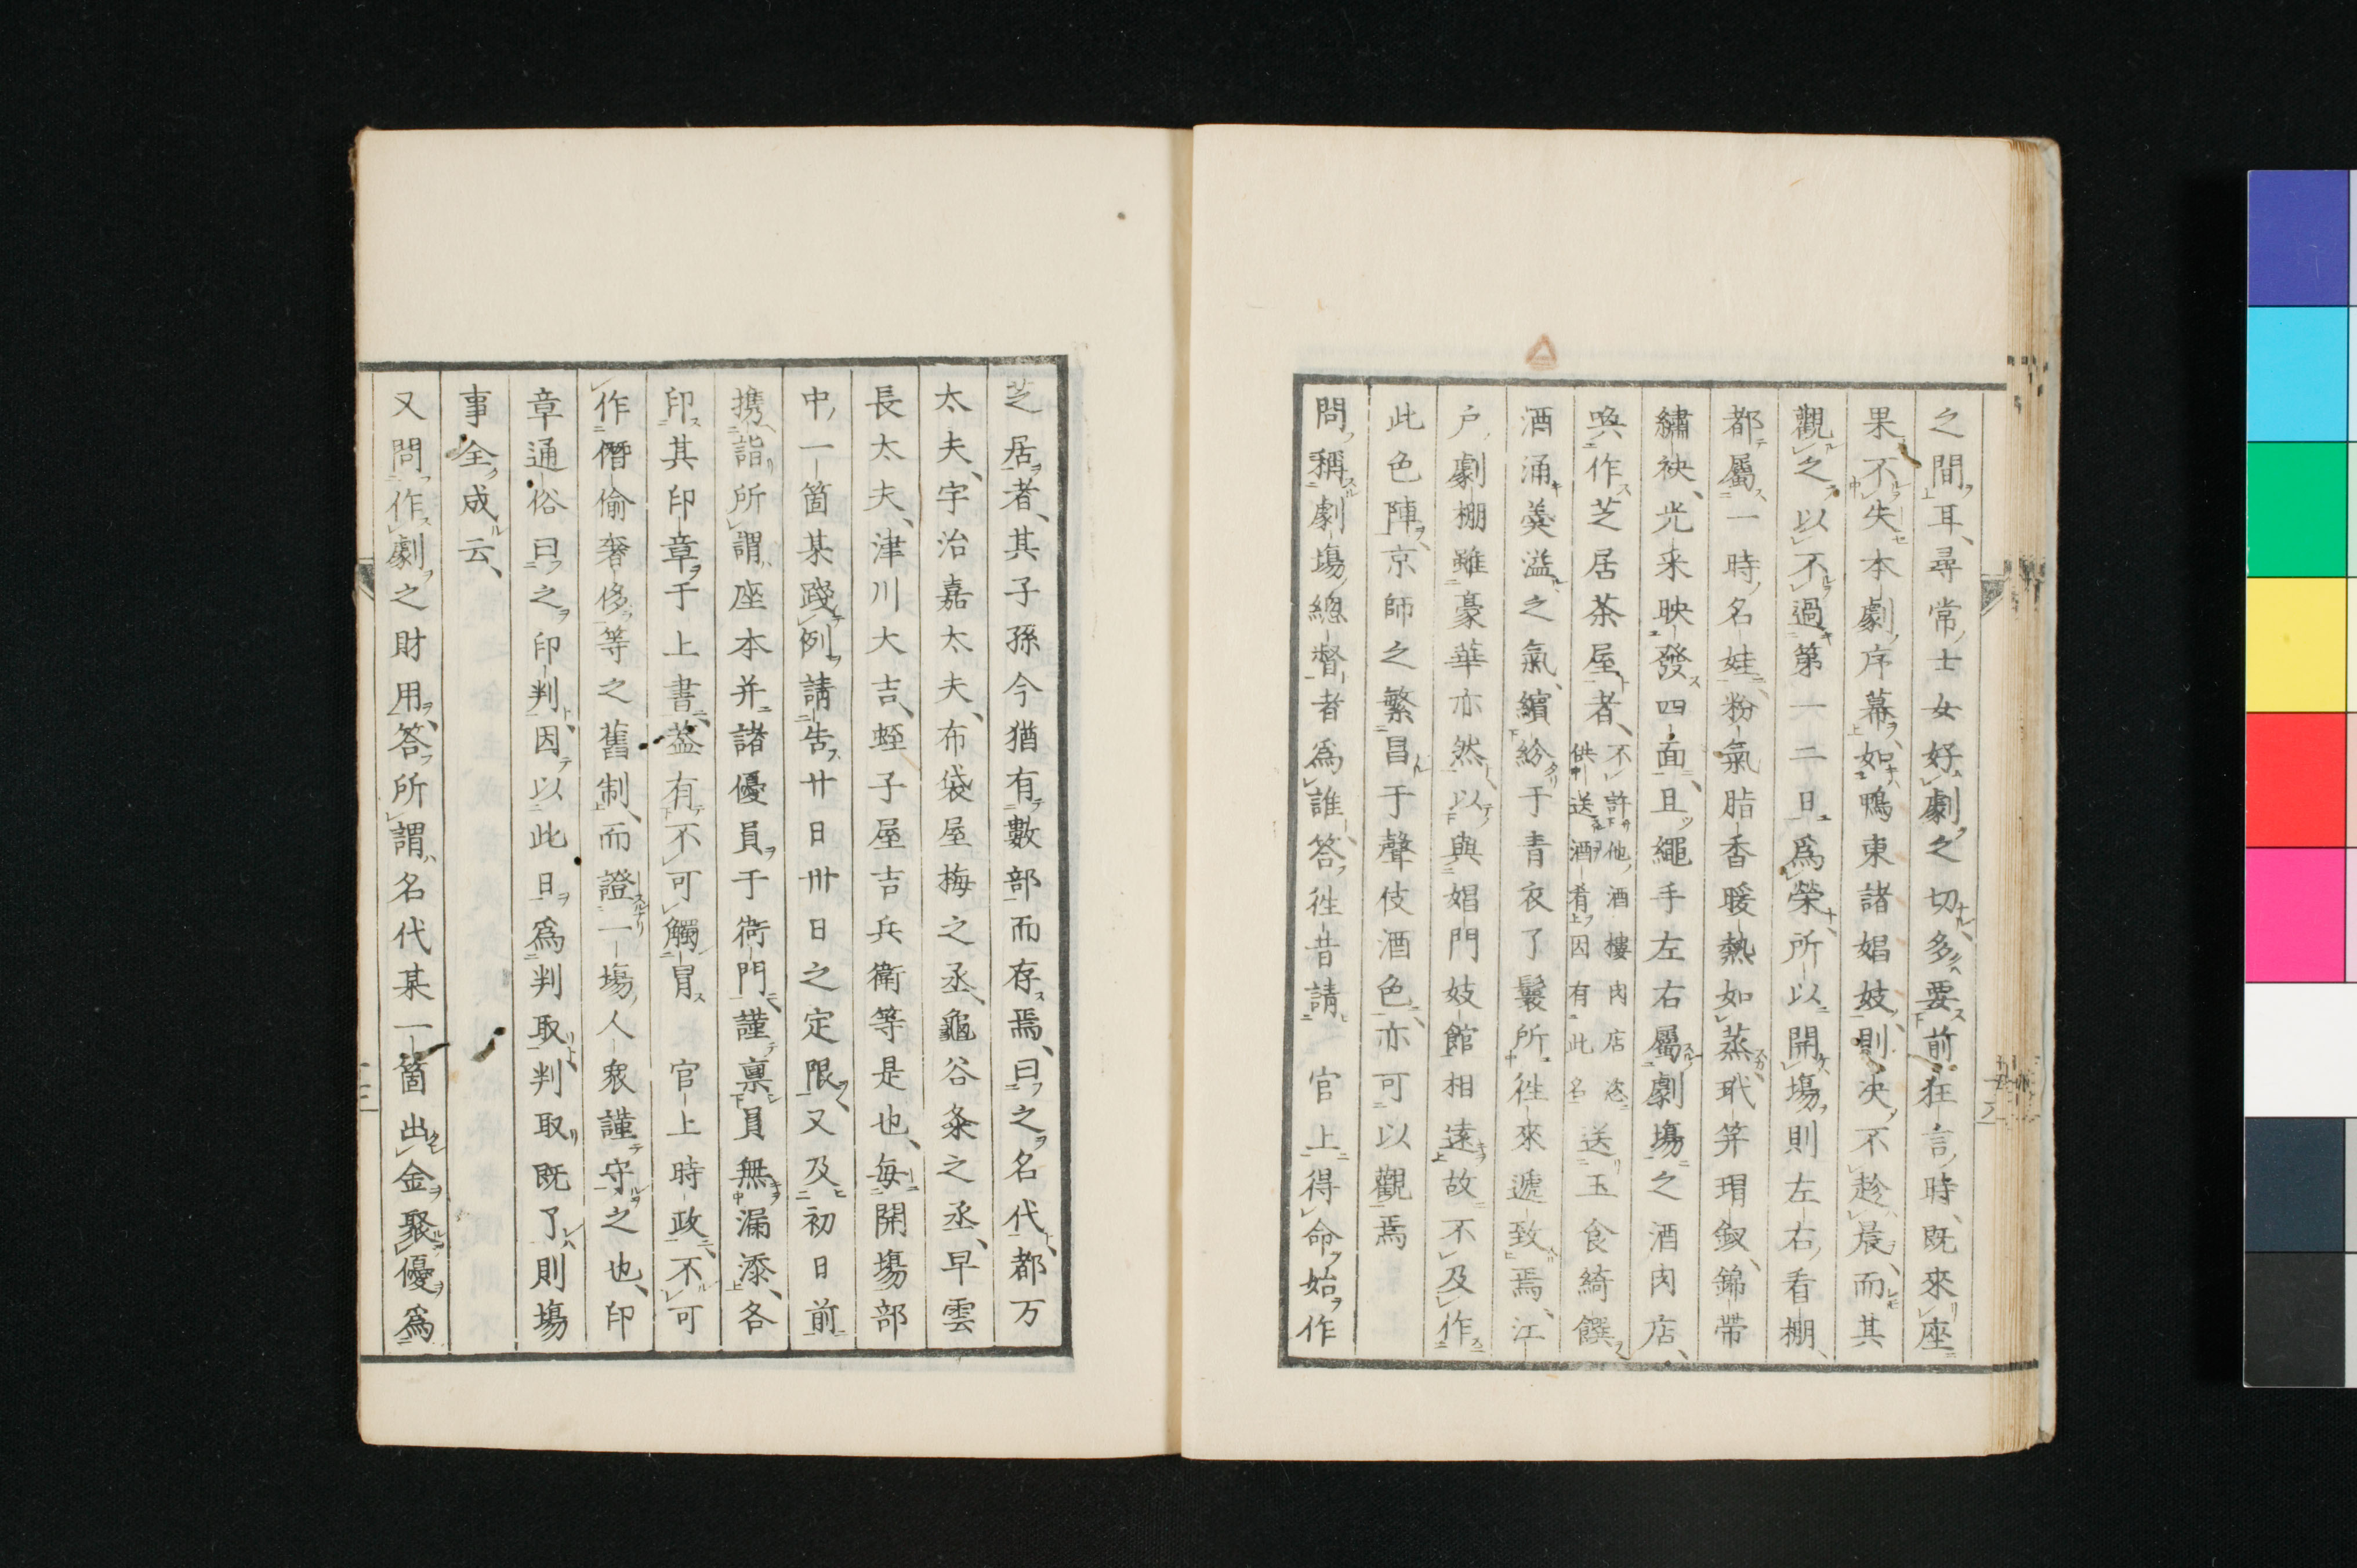 之間耳、尋常士女好劇之切多要前狂言時、既來座
果不失本劇序幕、如鴨東諸娼妓、則决不趁晨、而其
觀之、以不過第一二日為榮、所以開場、則左右看棚、
都屬一時名娃、粉氣脂香暖熱如蒸、玳笄瑁釵、錦帶
繡袂、光采映發四面、且繩手左右屬劇場之酒肉店、
喚作芝居茶屋者、不許他酒樓肉店恣供送酒肴因有此名送玉食綺饌
酒涌羹溢之氣、繽紛于青衣了鬟所徃來遞致焉、江
戸劇棚雖豪華亦然、以與娼門妓館相遠故不及作
此色陣、京師之繁昌于聲伎酒色、亦可以觀焉
問稱劇場總督者為誰、答徃昔請官上得命始作
芝居者、其子孫今猶有數部而存焉、曰之名代、都万
太夫、宇治嘉太夫、布袋屋梅之丞、龜谷粂之丞、早雲
長太夫、津川大吉、蛭子屋吉兵衛等是也、每開場部
中一箇某踐例請告廿日卅日之定限、又及初日前
携詣所謂座本并諸優員于衙門、謹稟員無漏漆、各
印其印章于上書、葢有不可觸冒官上時政、不可
作僭偷奢侈等之舊制、而證一場人衆謹守之也、印
章通俗曰之印判、因以此日為判取、判取既了則場
事全成云、
又問作劇之財用、答所謂名代某一箇出金聚優為